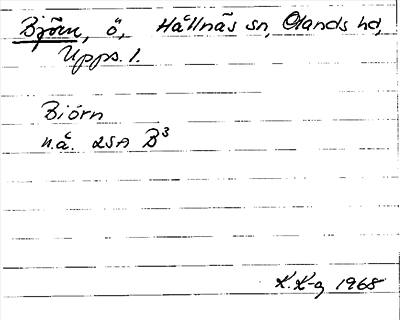 Björn, ö, Hållnäs sn, Olands hd,
Upps. l.
Biórn
n.å. LSA B³
K. K-g 1968